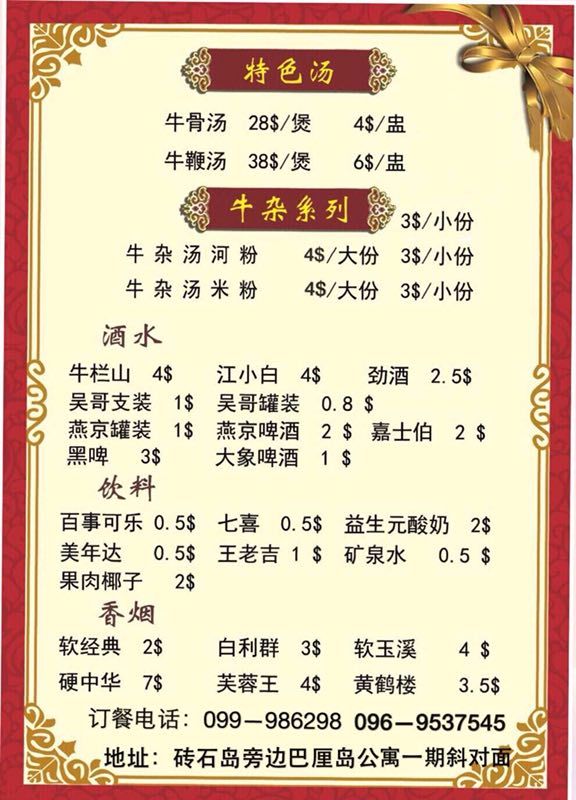 特色汤
牛骨汤 28$/煲 4$/盅
牛鞭汤 38$/煲 6$/盅
牛杂系列 3$/小份
牛杂汤河粉 4$/大份 3$/小份
牛杂汤米粉 4$/大份 3$/小份
酒水
牛栏山 4$ 江小白 4$ 劲酒 2.5$
吴哥支装 1$ 吴哥罐装 0.8 $
燕京罐装 1$ 燕京啤酒 2 $ 嘉士伯 2 $
黑啤 3$ 大象啤酒 1 $
饮料
百事可乐 0.5$ 七喜 0.5$ 益生元酸奶 2$
美年达 0.5$ 王老吉 1 $ 矿泉水 0.5 $
果肉椰子 2$
香烟
软经典 2$ 白利群 3$ 软玉溪 4 $
硬中华 7$ 芙蓉王 4$ 黄鹤楼 3.5$
订餐电话：099—986298 096—9537545
地址：砖石岛旁边巴厘岛公寓一期斜对面